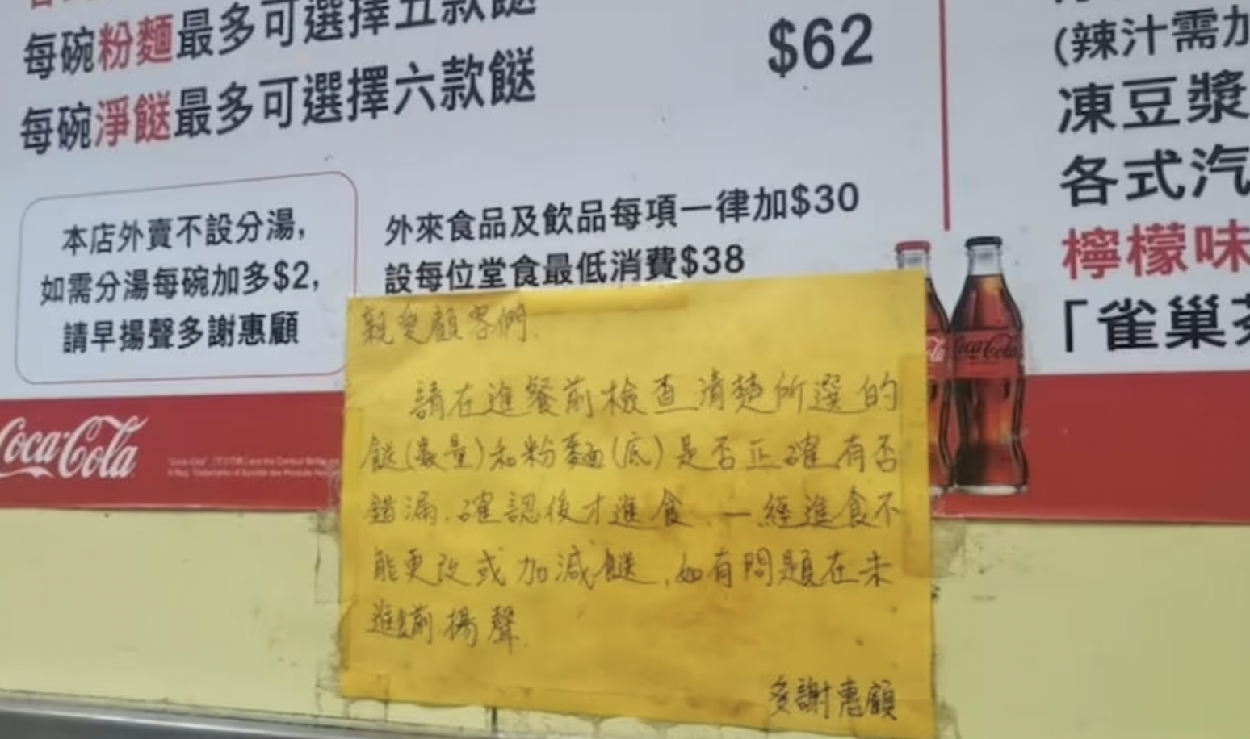 每碗粉麵最多可選擇五款餸
每碗淨餸最多可選擇六款餸
$62
本店外賣不設分湯,
如需分湯每碗加多$2,
請早揚聲多謝惠顧
外來食品及飲品每項一律加$30
設每位堂食最低消費$38
(辣汁需加
凍豆漿
各式汽
檸檬味
「雀巢茶
Coca-Cola
Coca-Cola
親愛顧客們.
請在進餐前檢查清楚所選的
餸(數量)和粉麵(底)是否正確有否
錯漏.確認後才進食.一經進食不
能更改或加減餸,如有問題在未
進食前揚聲.
多謝惠顧